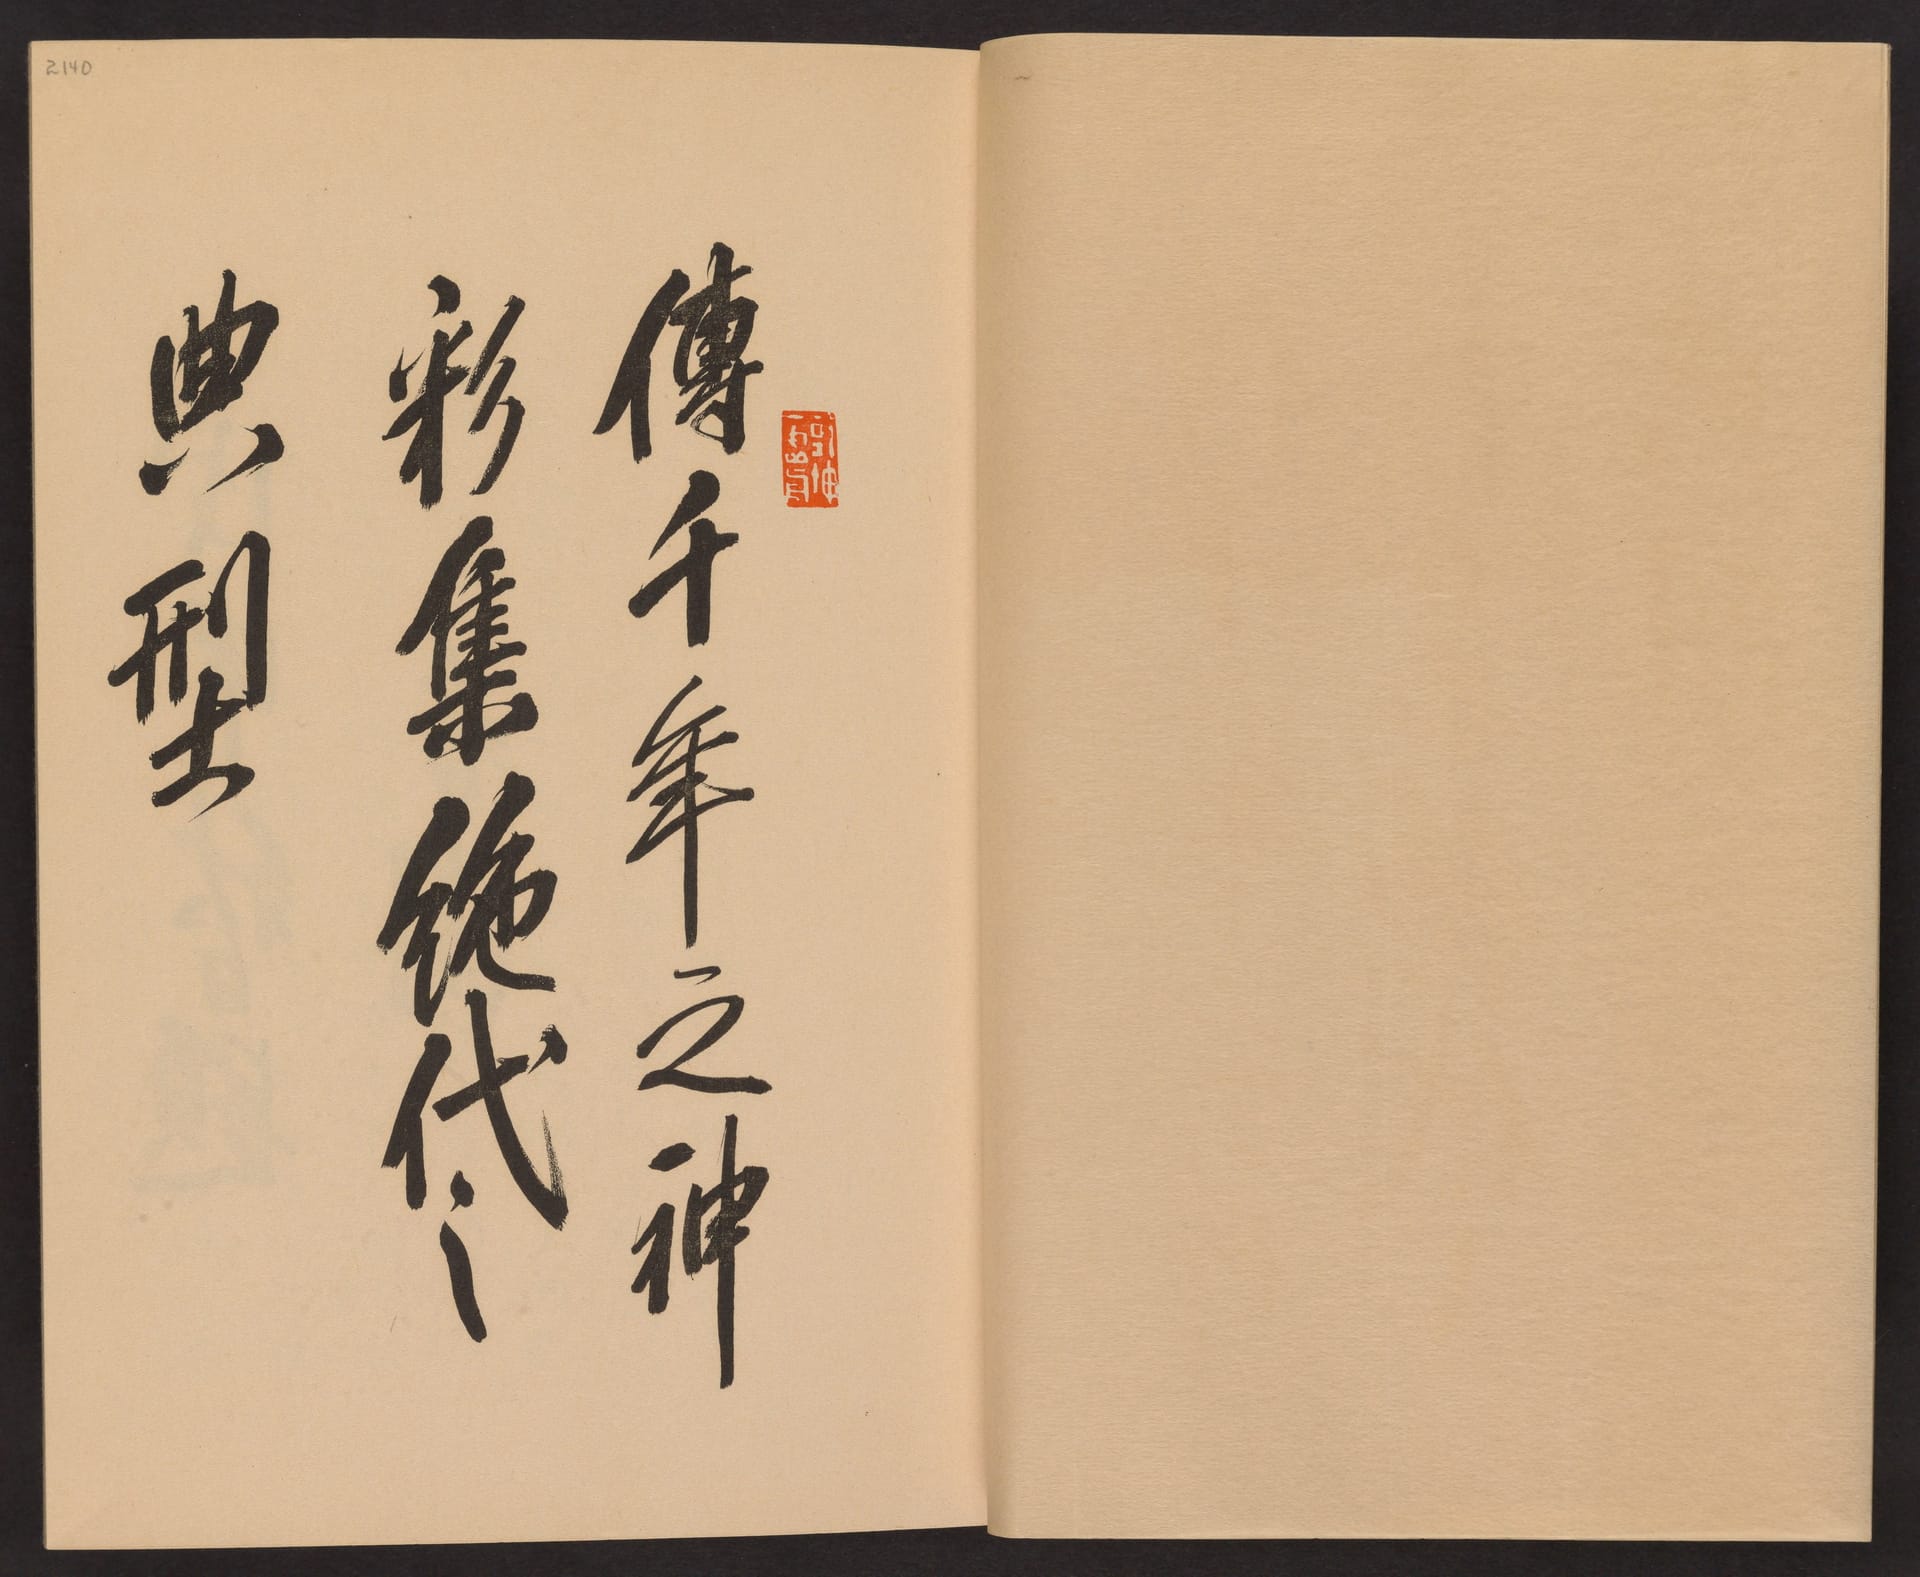 傳千年之神
彩集絶代之
典型
2140